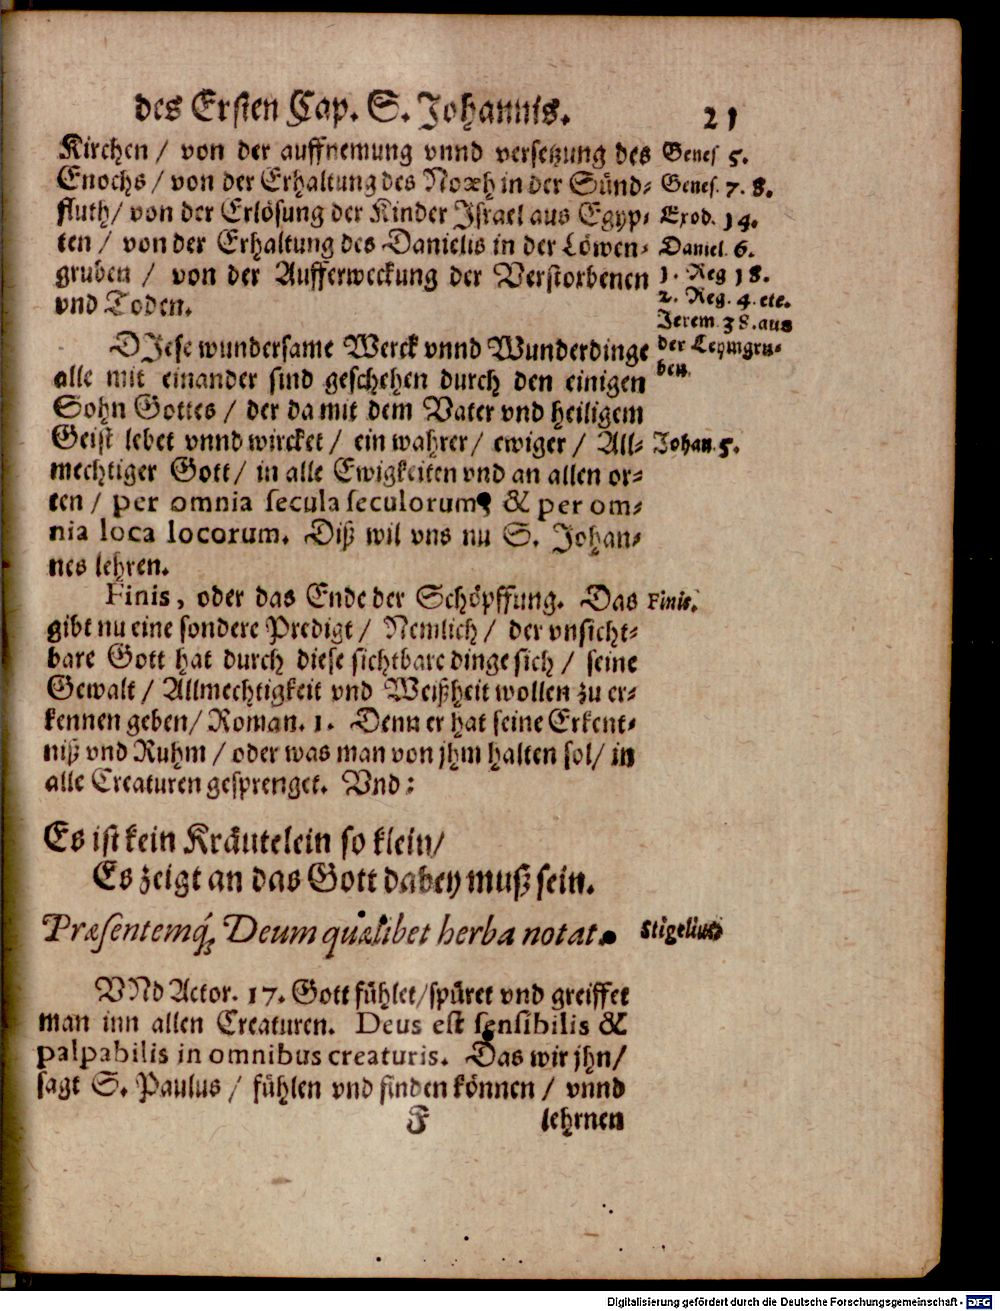 des Ersten Cap. S. Johannis. 21
Kirchen / von der auffnemung vnnd versetzung des
Enochs / von der Erhaltung des Noæh in der Sünd-
fluth / von der Erlösung der Kinder Israel aus Egyp-
ten / von der Erhaltung des Danielis in der Löwen-
gruben / von der Aufferweckung der Verstorbenen
vnd Toden.
Genes 5.
Genes. 7. 8.
Exod. 14.
Daniel. 6.
1. Reg 18.
2. Reg. 4. etc.
Jerem 38. aus
der Leymgru-
ben.
DIese wundersame Werck vnnd Wunderdinge
alle mit einander sind geschehen durch den einigen
Sohn Gottes / der da mit dem Vater vnd heiligem
Geist lebet vnnd wircket / ein wahrer / ewiger / All-
mechtiger Gott / in alle Ewigkeiten vnd an allen or-
ten / per omnia secula seculorum & per om-
nia loca locorum. Diß wil vns nu S. Johan-
nes lehren.
Johan. 5.
Finis, oder das Ende der Schöpffung. Das
gibt nu eine sondere Predigt / Nemlich / der vnsicht-
bare Gott hat durch diese sichtbare dinge sich / seine
Gewalt / Allmechtigkeit vnd Weißheit wollen zu er-
kennen geben / Roman. 1. Denn er hat seine Erkent-
niß vnd Ruhm / oder was man von jhm halten sol / in
alle Creaturen gesprenget. Vnd:
Finis.
Es ist kein Kräutelein so klein /
Es zeigt an das Gott dabey muß sein.
Præsentemq́; Deum quælibet herba notat.
Stigelius
VNd Actor. 17. Gott fühlet / spüret vnd greiffet
man inn allen Creaturen. Deus est sensibilis &
palpabilis in omnibus creaturis. Das wir jhn /
sagt S. Paulus / fühlen vnd finden können / vnnd
F lehrnen
Digitalisierung gefördert durch die Deutsche Forschungsgemeinschaft - DFG